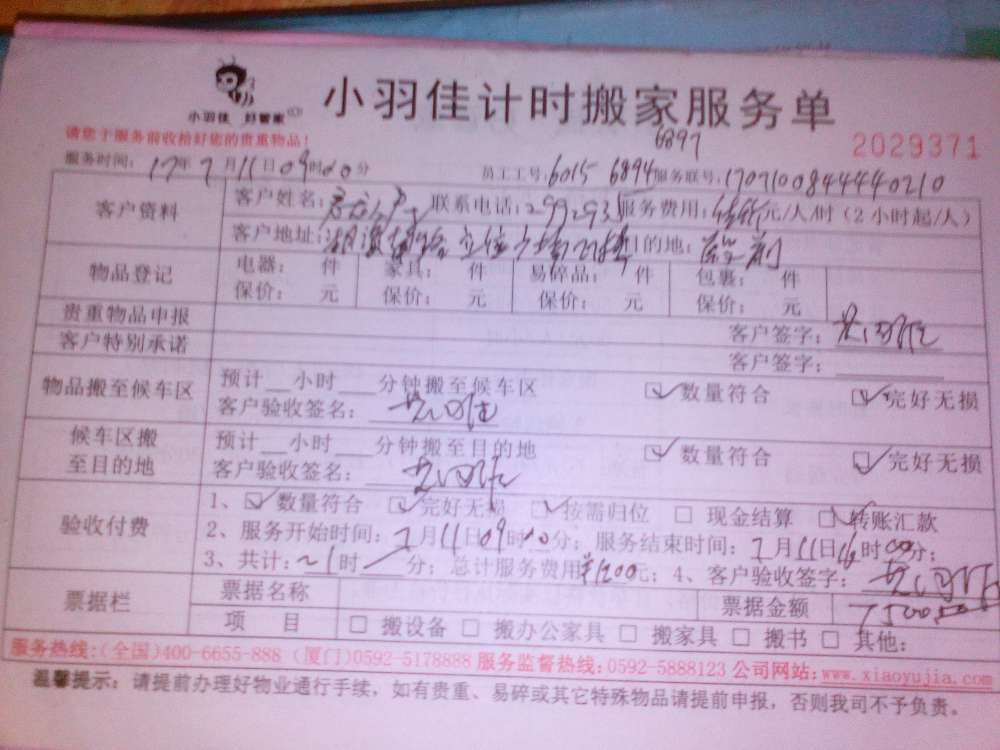 小羽佳 好管家
小羽佳计时搬家服务单
请您于服务前收拾好您的贵重物品！
6897
2029371
服务时间：17年7月11日09时00分 员工工号：6015 6894 服务联号：1707100844440210
客户资料
客户姓名： 联系电话：299293 服务费用： 元/人/时（2小时起/人）
客户地址： 目的地：
物品登记
电器： 件 家具： 件 易碎品： 件 包裹： 件
保价： 元 保价： 元 保价： 元 保价： 元
贵重物品申报 客户签字：
客户特别承诺 客户签字：
物品搬至候车区
预计 小时 分钟搬至候车区 数量符合 完好无损
客户验收签名：
候车区搬至目的地
预计 小时 分钟搬至目的地 数量符合 完好无损
客户验收签名：
验收付费
1、数量符合 完好无损 按需归位 现金结算 转账汇款
2、服务开始时间：7月11日09时00分；服务结束时间：7月11日 时00分；
3、共计： 时 分；总计服务费用 1200元；4、客户验收签字：
票据栏
票据名称 票据金额
项目 搬设备 搬办公家具 搬家具 搬书 其他：
服务热线：（全国）400-6655-888（厦门）0592-5178888 服务监督热线：0592-5888123 公司网站：www.xiaoyujia.com
温馨提示：请提前办理好物业通行手续，如有贵重、易碎或其它特殊物品请提前申报，否则我司不予负责。